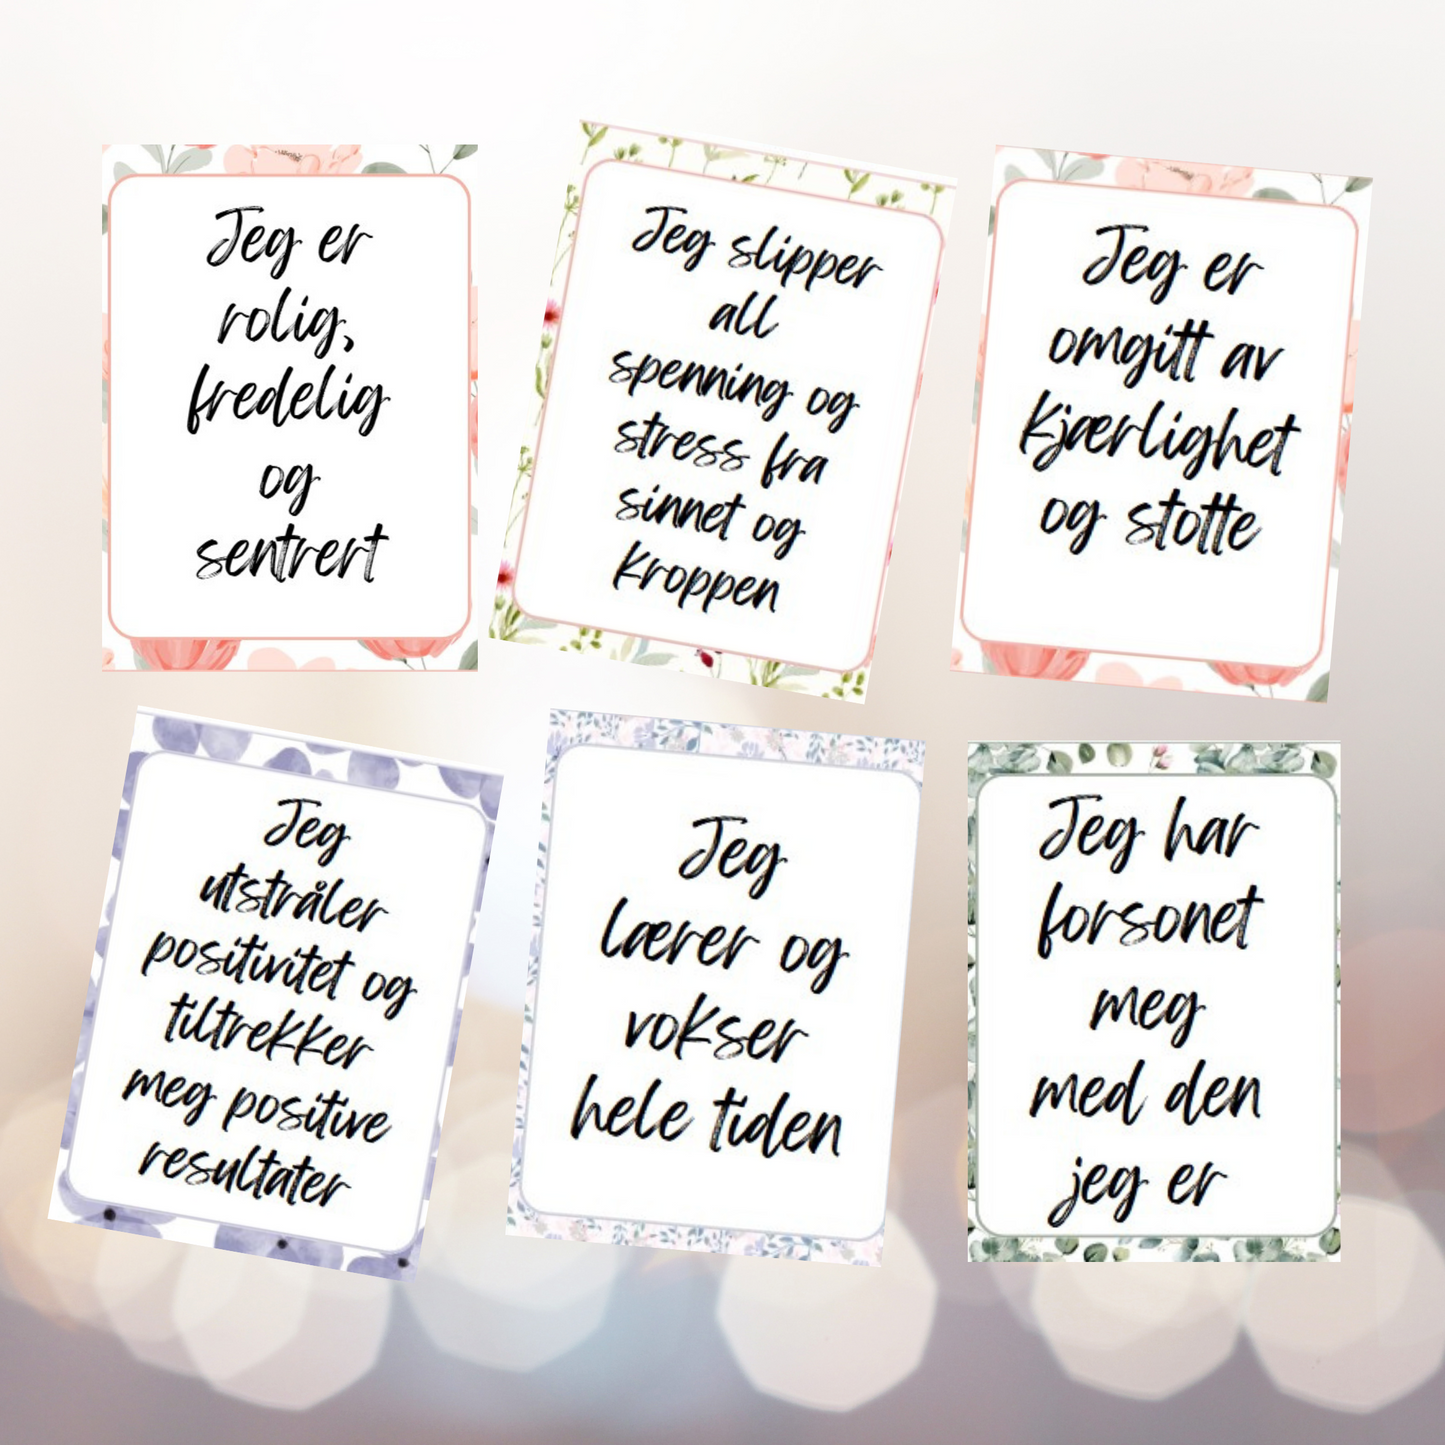 Jeg er
rolig,
fredelig
og
sentrert
Jeg slipper
all
spenning og
stress fra
sinnet og
kroppen
Jeg er
omgitt av
kjærlighet
og stotte
Jeg
utstråler
positivitet og
tiltrekker
meg positive
resultater
Jeg
lærer og
vokser
hele tiden
Jeg har
forsonet
meg
med den
jeg er